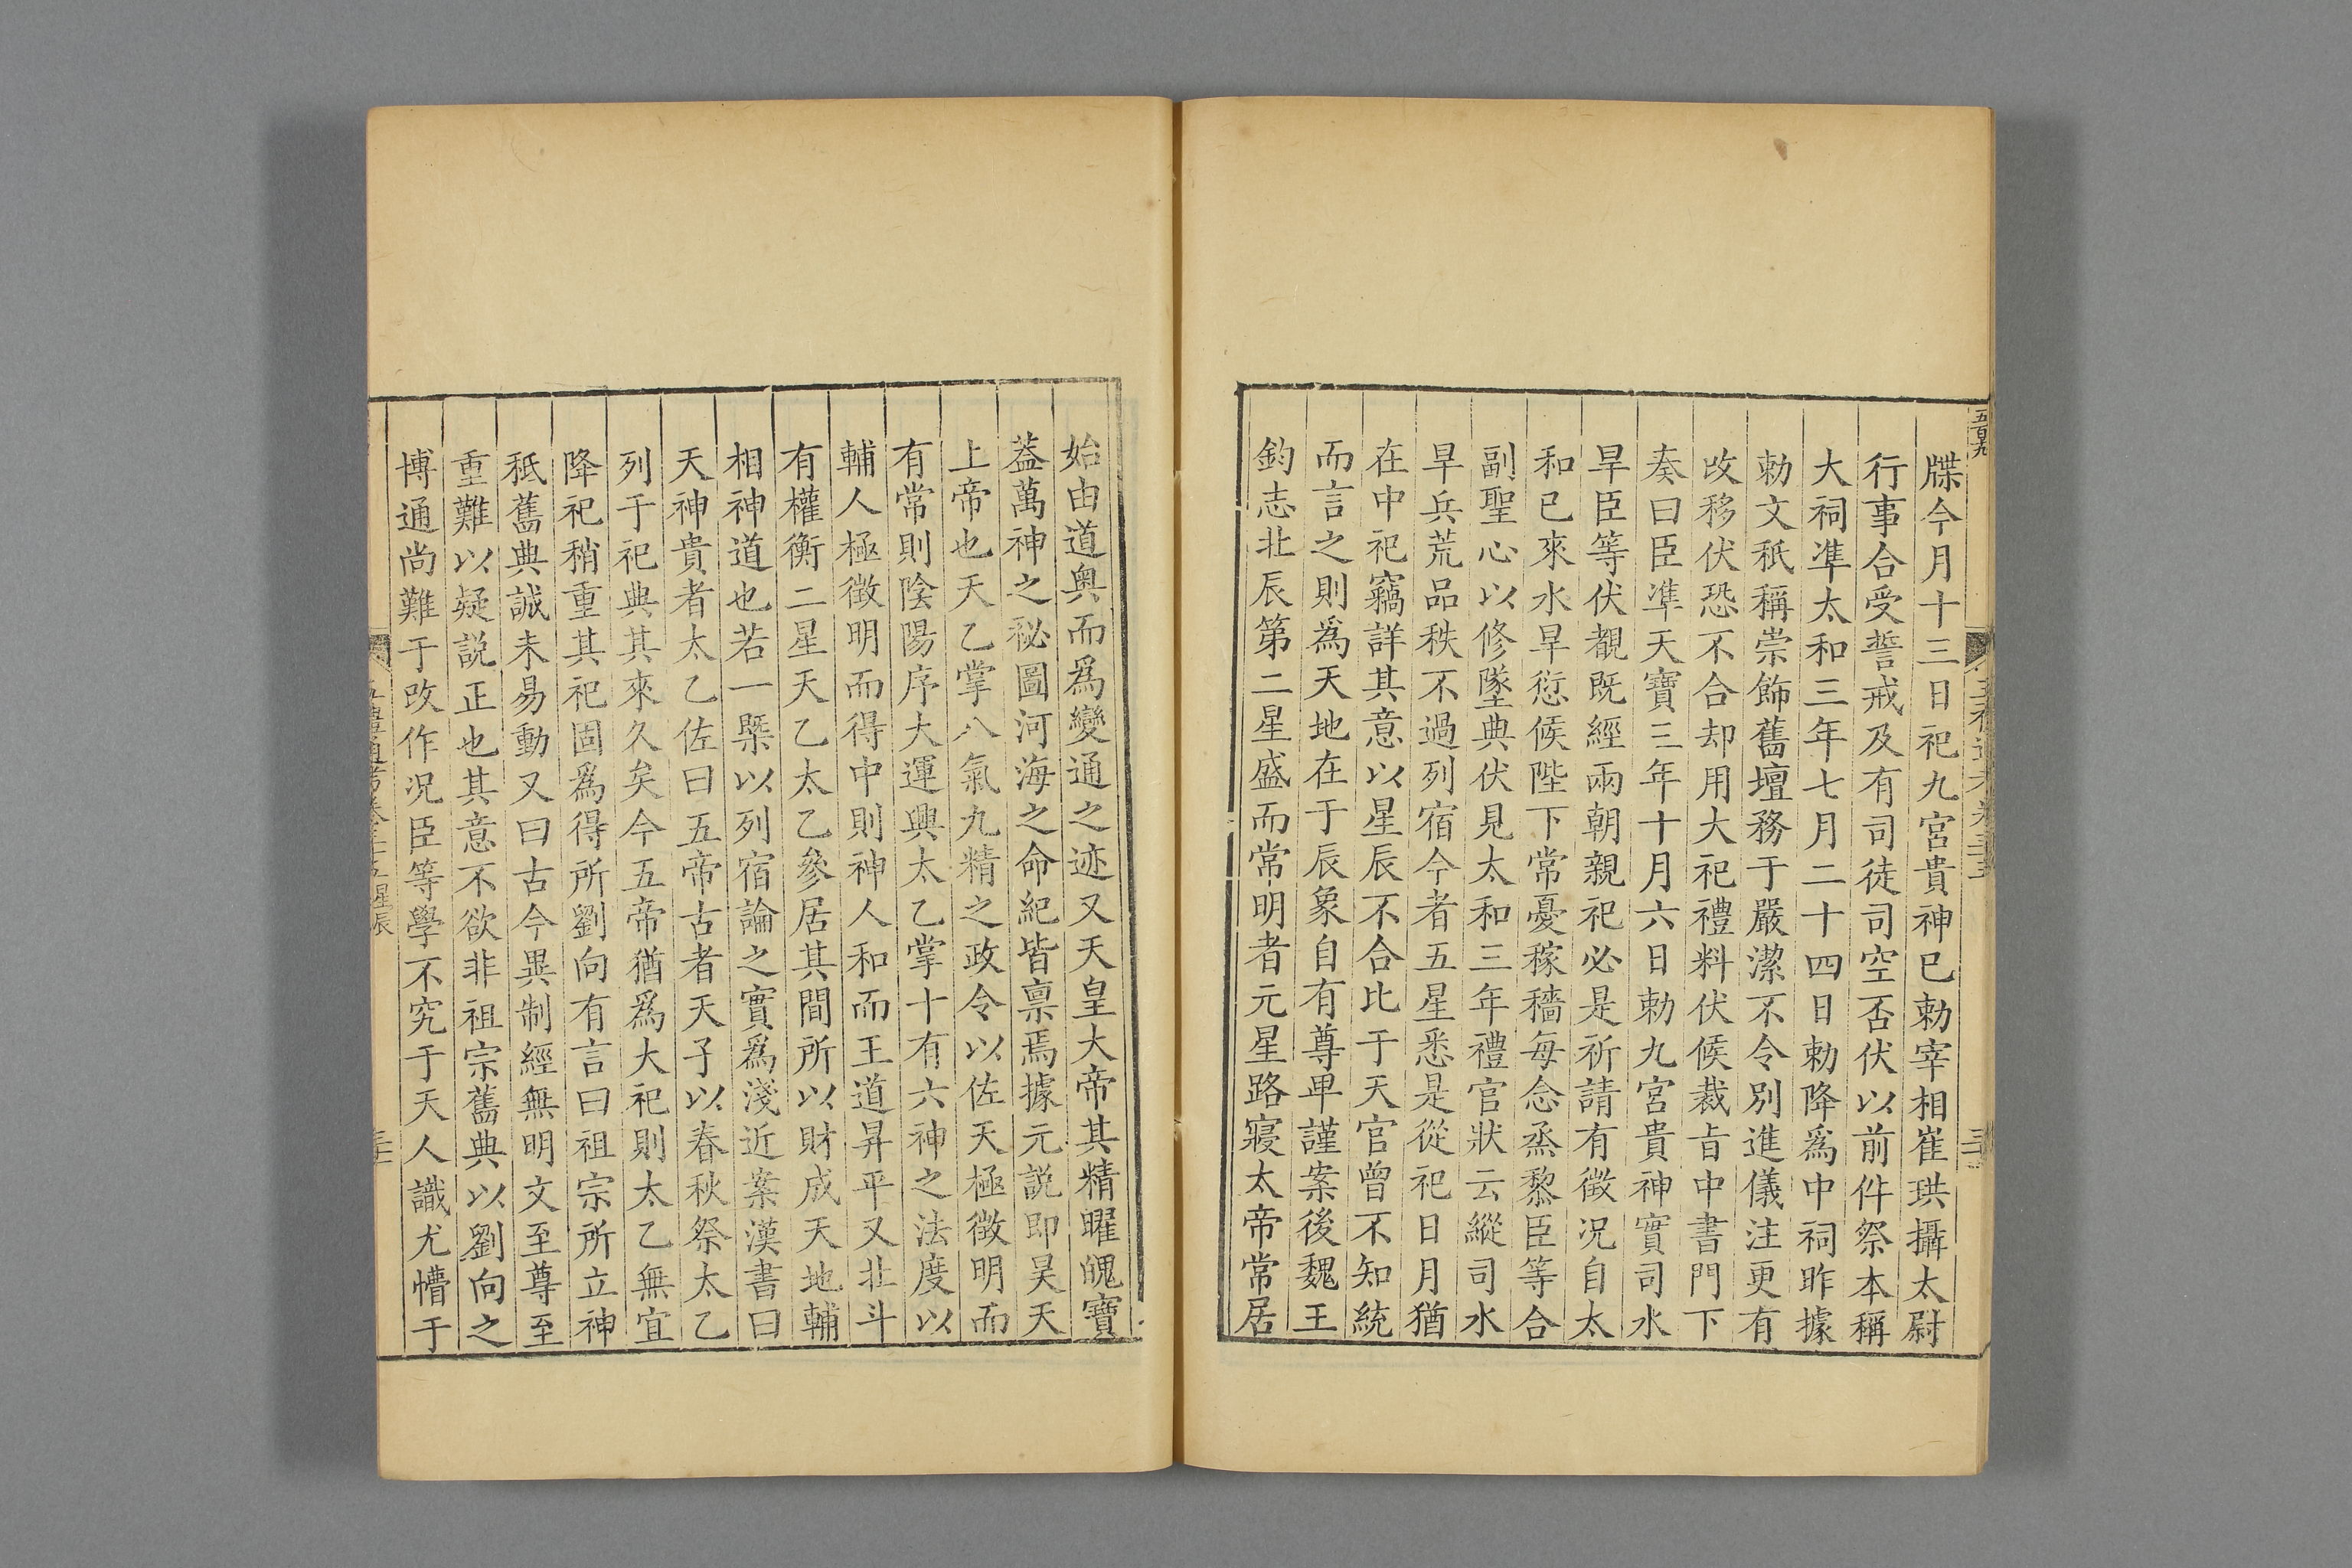 牒今月十三日祀九宮貴神已勅宰相崔珙攝太尉
行事合受誓戒及有司徒司空否伏以前件祭本稱
大祠準太和三年七月二十四日勅降爲中祠昨據
勅文秖稱崇飾舊壇務于嚴潔不令別進儀注更有
改移伏恐不合却用大祀禮料伏候裁旨中書門下
奏曰臣準天寶三年十月六日勅九宮貴神實司水
旱臣等伏覩既經兩朝親祀必是祈請有徵况自太
和已來水旱愆候陛下常憂稼穡每念烝黎臣等合
副聖心以修墜典伏見太和三年禮官狀云縱司水
旱兵荒品秩不過列宿今者五星悉是從祀日月猶
在中祀竊詳其意以星辰不合比于天官曾不知統
而言之則爲天地在于辰象自有尊卑謹案後魏王
鈞志北辰第二星盛而常明者元星路寢太帝常居
始由道奥而爲變通之迹又天皇大帝其精曜魄寶
葢萬神之秘圖河海之命紀皆禀焉據元説即昊天
上帝也天乙掌八氣九精之政令以佐天極徵明而
有常則陰陽序大運興太乙掌十有六神之法度以
輔人極徵明而得中則神人和而王道昇平又北斗
有權衡二星天乙太乙參居其間所以財成天地輔
相神道也若一槩以列宿論之實爲淺近案漢書曰
天神貴者太乙佐曰五帝古者天子以春秋祭太乙
列于祀典其來久矣今五帝猶爲大祀則太乙無宜
降祀稍重其祀固爲得所劉向有言曰祖宗所立神
秖舊典誠未易動又曰古今異制經無明文至尊至
重難以疑説正也其意不欲非祖宗舊典以劉向之
博通尚難于改作况臣等學不究于天人識尤懵于